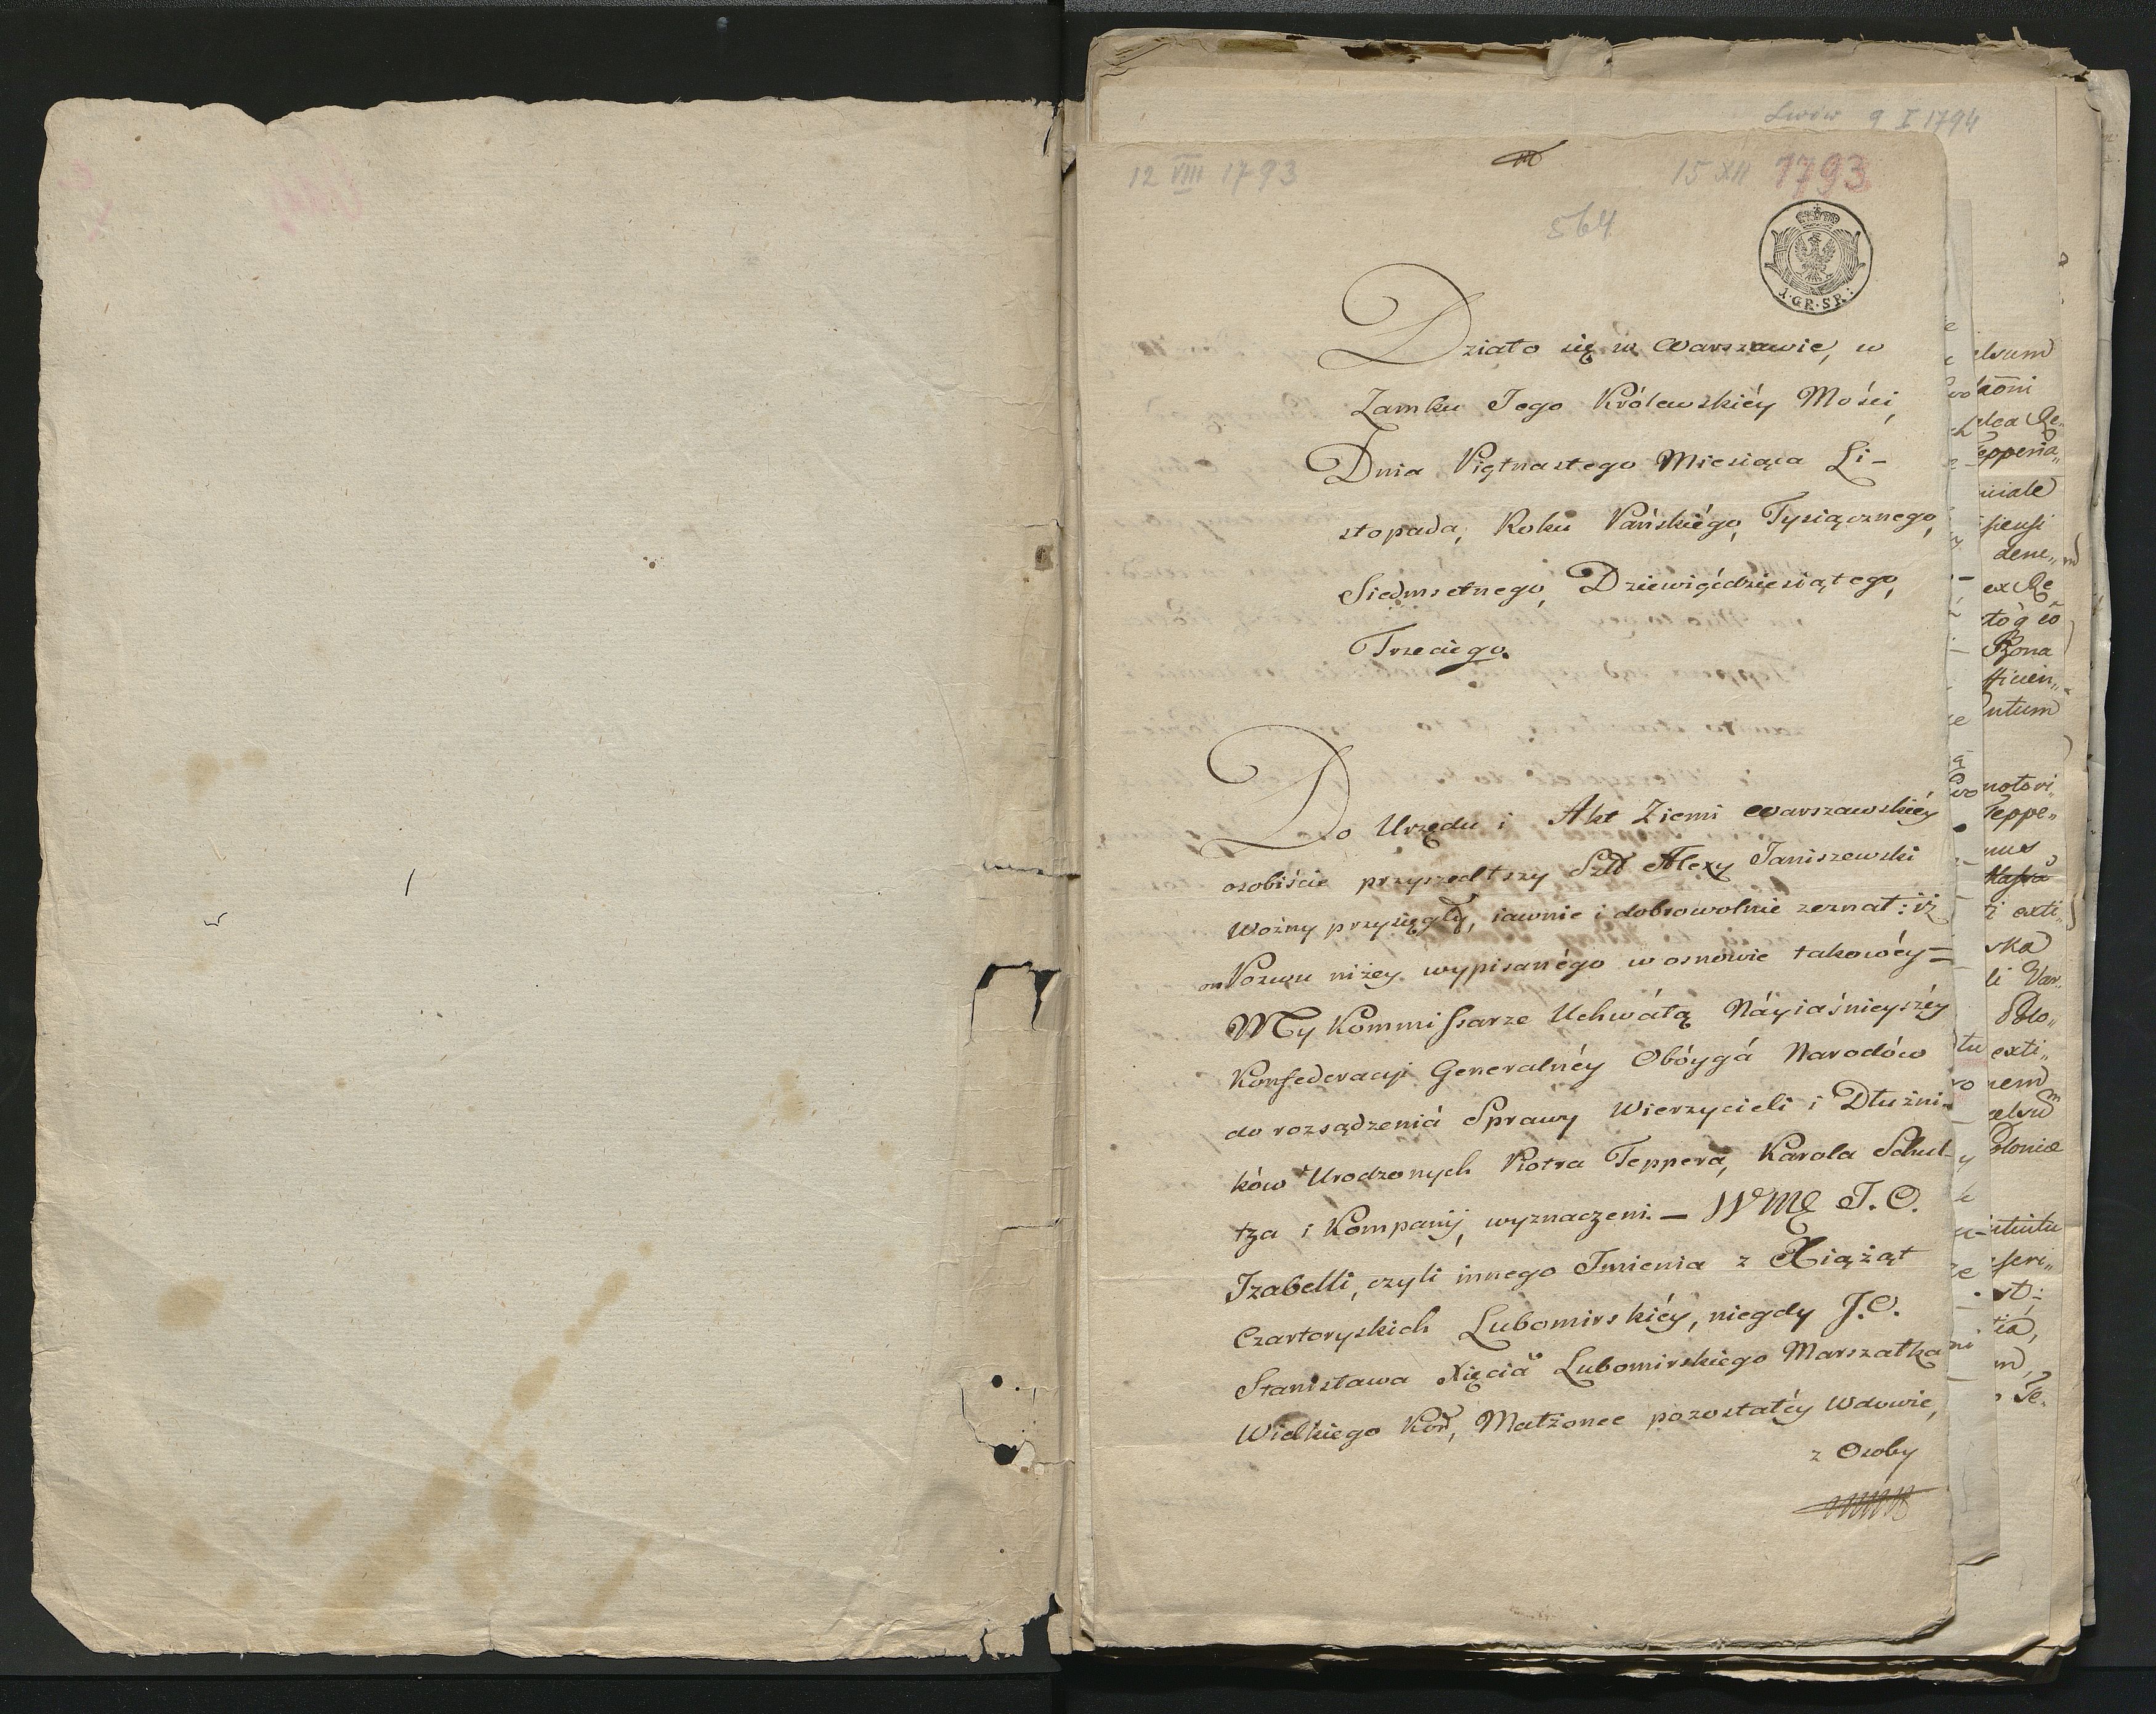 Lwów 9 I 1794
12 VIII 1793
15 XII 1793
564
1·GR·SR·
Działo się w Warszawie, w
Zamku Jego Królewskiéy Mości,
Dnia Piętnastego Miesiąca Li-
stopada, Roku Pańskiégo, Tysiącznego,
Siedmsetnego, Dziewięćdziesiątego,
Trzeciego.
Do Urzędu i Akt Ziemi Warszawskiéy
osobiście przyszedłszy Szld Alexy Janiszewski
Woźny przysięgły, iawnie i dobrowolnie zeznał: iż
on Pozwu niżey wypisanégo w osnowie takowéy =
My Kommissarze Uchwáłą Náyiaśnieyszéy
Konfederacyi Generalnéy Obóygá Narodów
do rozsądzeniá Sprawy Wierzycieli i Dłużni-
ków Urodzonych Piotra Teppera, Karola Schul-
tza i Kompanij, wyznaczeni. — W MC J. O.
Izabelli, czyli innego Imienia z Xiążąt
Czartoryskich Lubomirskiéy, niegdy J. O.
Stanisława Xięciá Lubomirskiego Marszałka
Wielkiego Kor, Małżonce pozostałéy Wdowie,
z Osoby
elsum
koni
elca Re„
epperia„
uiale
siensi
dene„
ex Re
Bona
ntum
notori„
Teppe„
mus
Kassa
ri exti„
ska
li Var„
Polo„
exti„
nem
Poloniæ